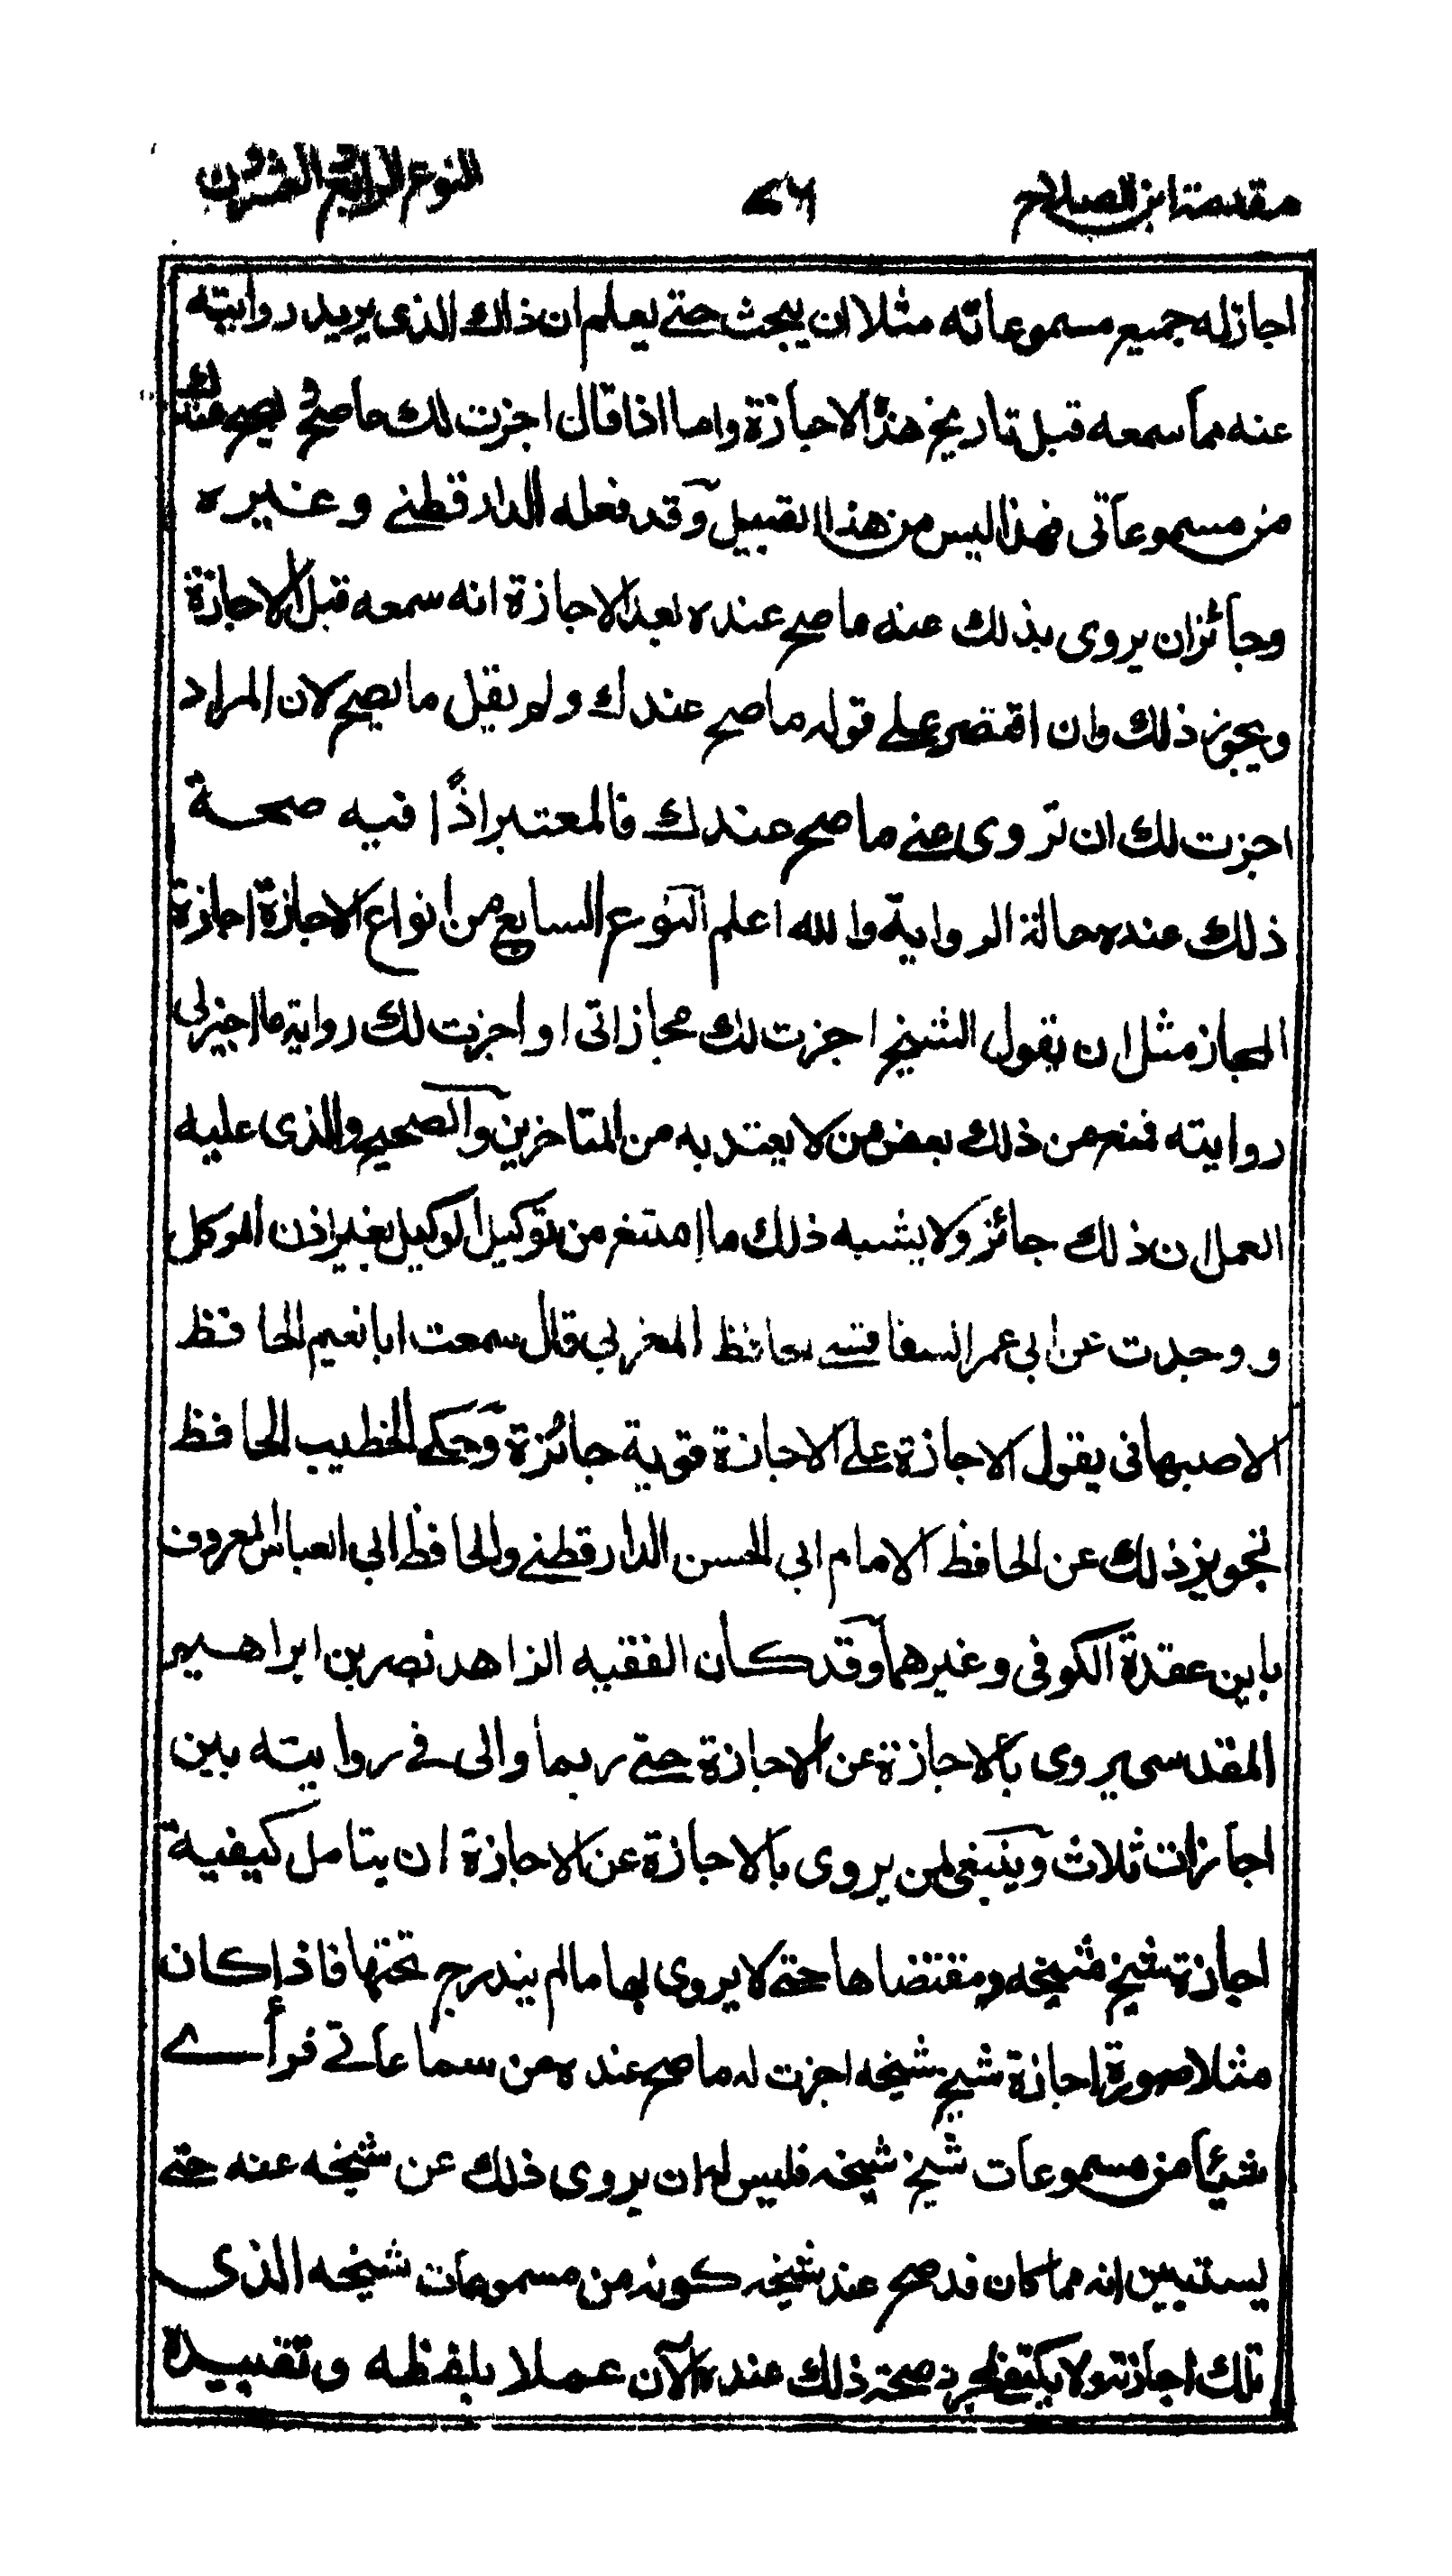 مقدمة ابن الصلاح
النوع الرابع والعشرون
اجاز له جميع مسموعاته مثلا ان يبحث حتے يعلم ان ذاك الذى يريد روايته
عنه مما سمعه قبل تاريخ هذه الاجازة واما اذا قال اجزت لك ما صح و يصح عندك
من مسموعاتى فهذا ليس من هذا القبيل وقد فعله الدارقطنے وغيره
وجائز ان يروى بذلك عنه ما صح عنده بعد الاجازة انه سمعه قبل الاجازة
ويجوز ذلك وان اقتصر علے قوله ما صح عندك ولم يقل ما يصح لان المراد
اجزت لك ان تروى عنے ما صح عندك فالمعتبر اذًا فيه صحة
ذلك عنده حالة الرواية والله اعلم النوع السابع من انواع الاجازة اجازة
المجاز مثل ان يقول الشيخ اجزت لك مجازاتى او اجزت لك رواية ما اجيز لى
روايته فمنع من ذلك بعض من لا يعتد به من المتاخرين والصحيح والذى عليه
العمل ان ذلك جائز ولا يشبه ذلك ما امتنع من توكيل الوكيل بغير اذن الموكل
ووجدت عن ابى عمر السفاقسے حافظ المغرب قال سمعت ابا نعيم الحافظ
الاصبهانى يقول الاجازة علے الاجازة قوية جائزة وحكے الخطيب الحافظ
تجويز ذلك عن الحافظ الامام ابى الحسن الدارقطنے والحافظ ابى العباس المعروف
بابن عقدة الكوفى وغيرهما وقد كان الفقيه الزاهد نصر بن ابراهيم
المقدسى يروى بالاجازة عن الاجازة حتے ربما والى فے روايته بين
اجازات ثلاث وينبغى لمن يروى بالاجازة عن الاجازة ان يتامل كيفية
اجازة شيخ شيخه ومقتضاها حتے لا يروى بها ما لم يندرج تحتها فاذا كان
مثلا صورة اجازة شيخ شيخه اجزت له ما صح عنده من سماعاتے فرأے
شيئا من مسموعات شيخ شيخه فليس له ان يروى ذلك عن شيخه عنه حتے
يستبين انه مما كان قد صح عند شيخه كونه من مسموعات شيخه الذى
تلك اجازته ولا يكتفے بمجرد صحة ذلك عنده الآن عملا بلفظه وتقييده